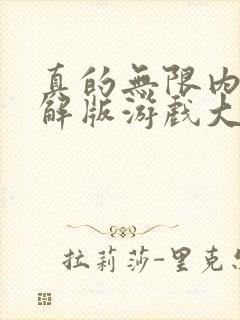 真的無限内
解版游戲大
拉莉莎-里克